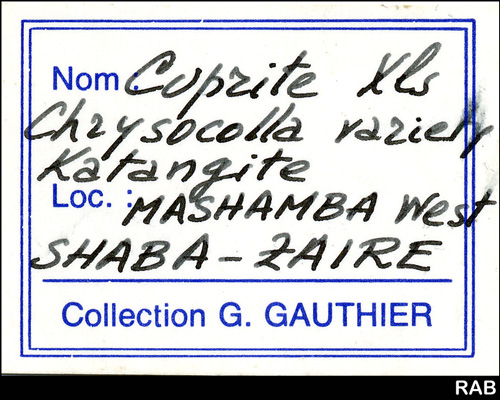 Nom : Cuprite Xls
Chrysocolla variety
Katangite
Loc. : MASHAMBA West
SHABA - ZAIRE
Collection G. GAUTHIER
RAB